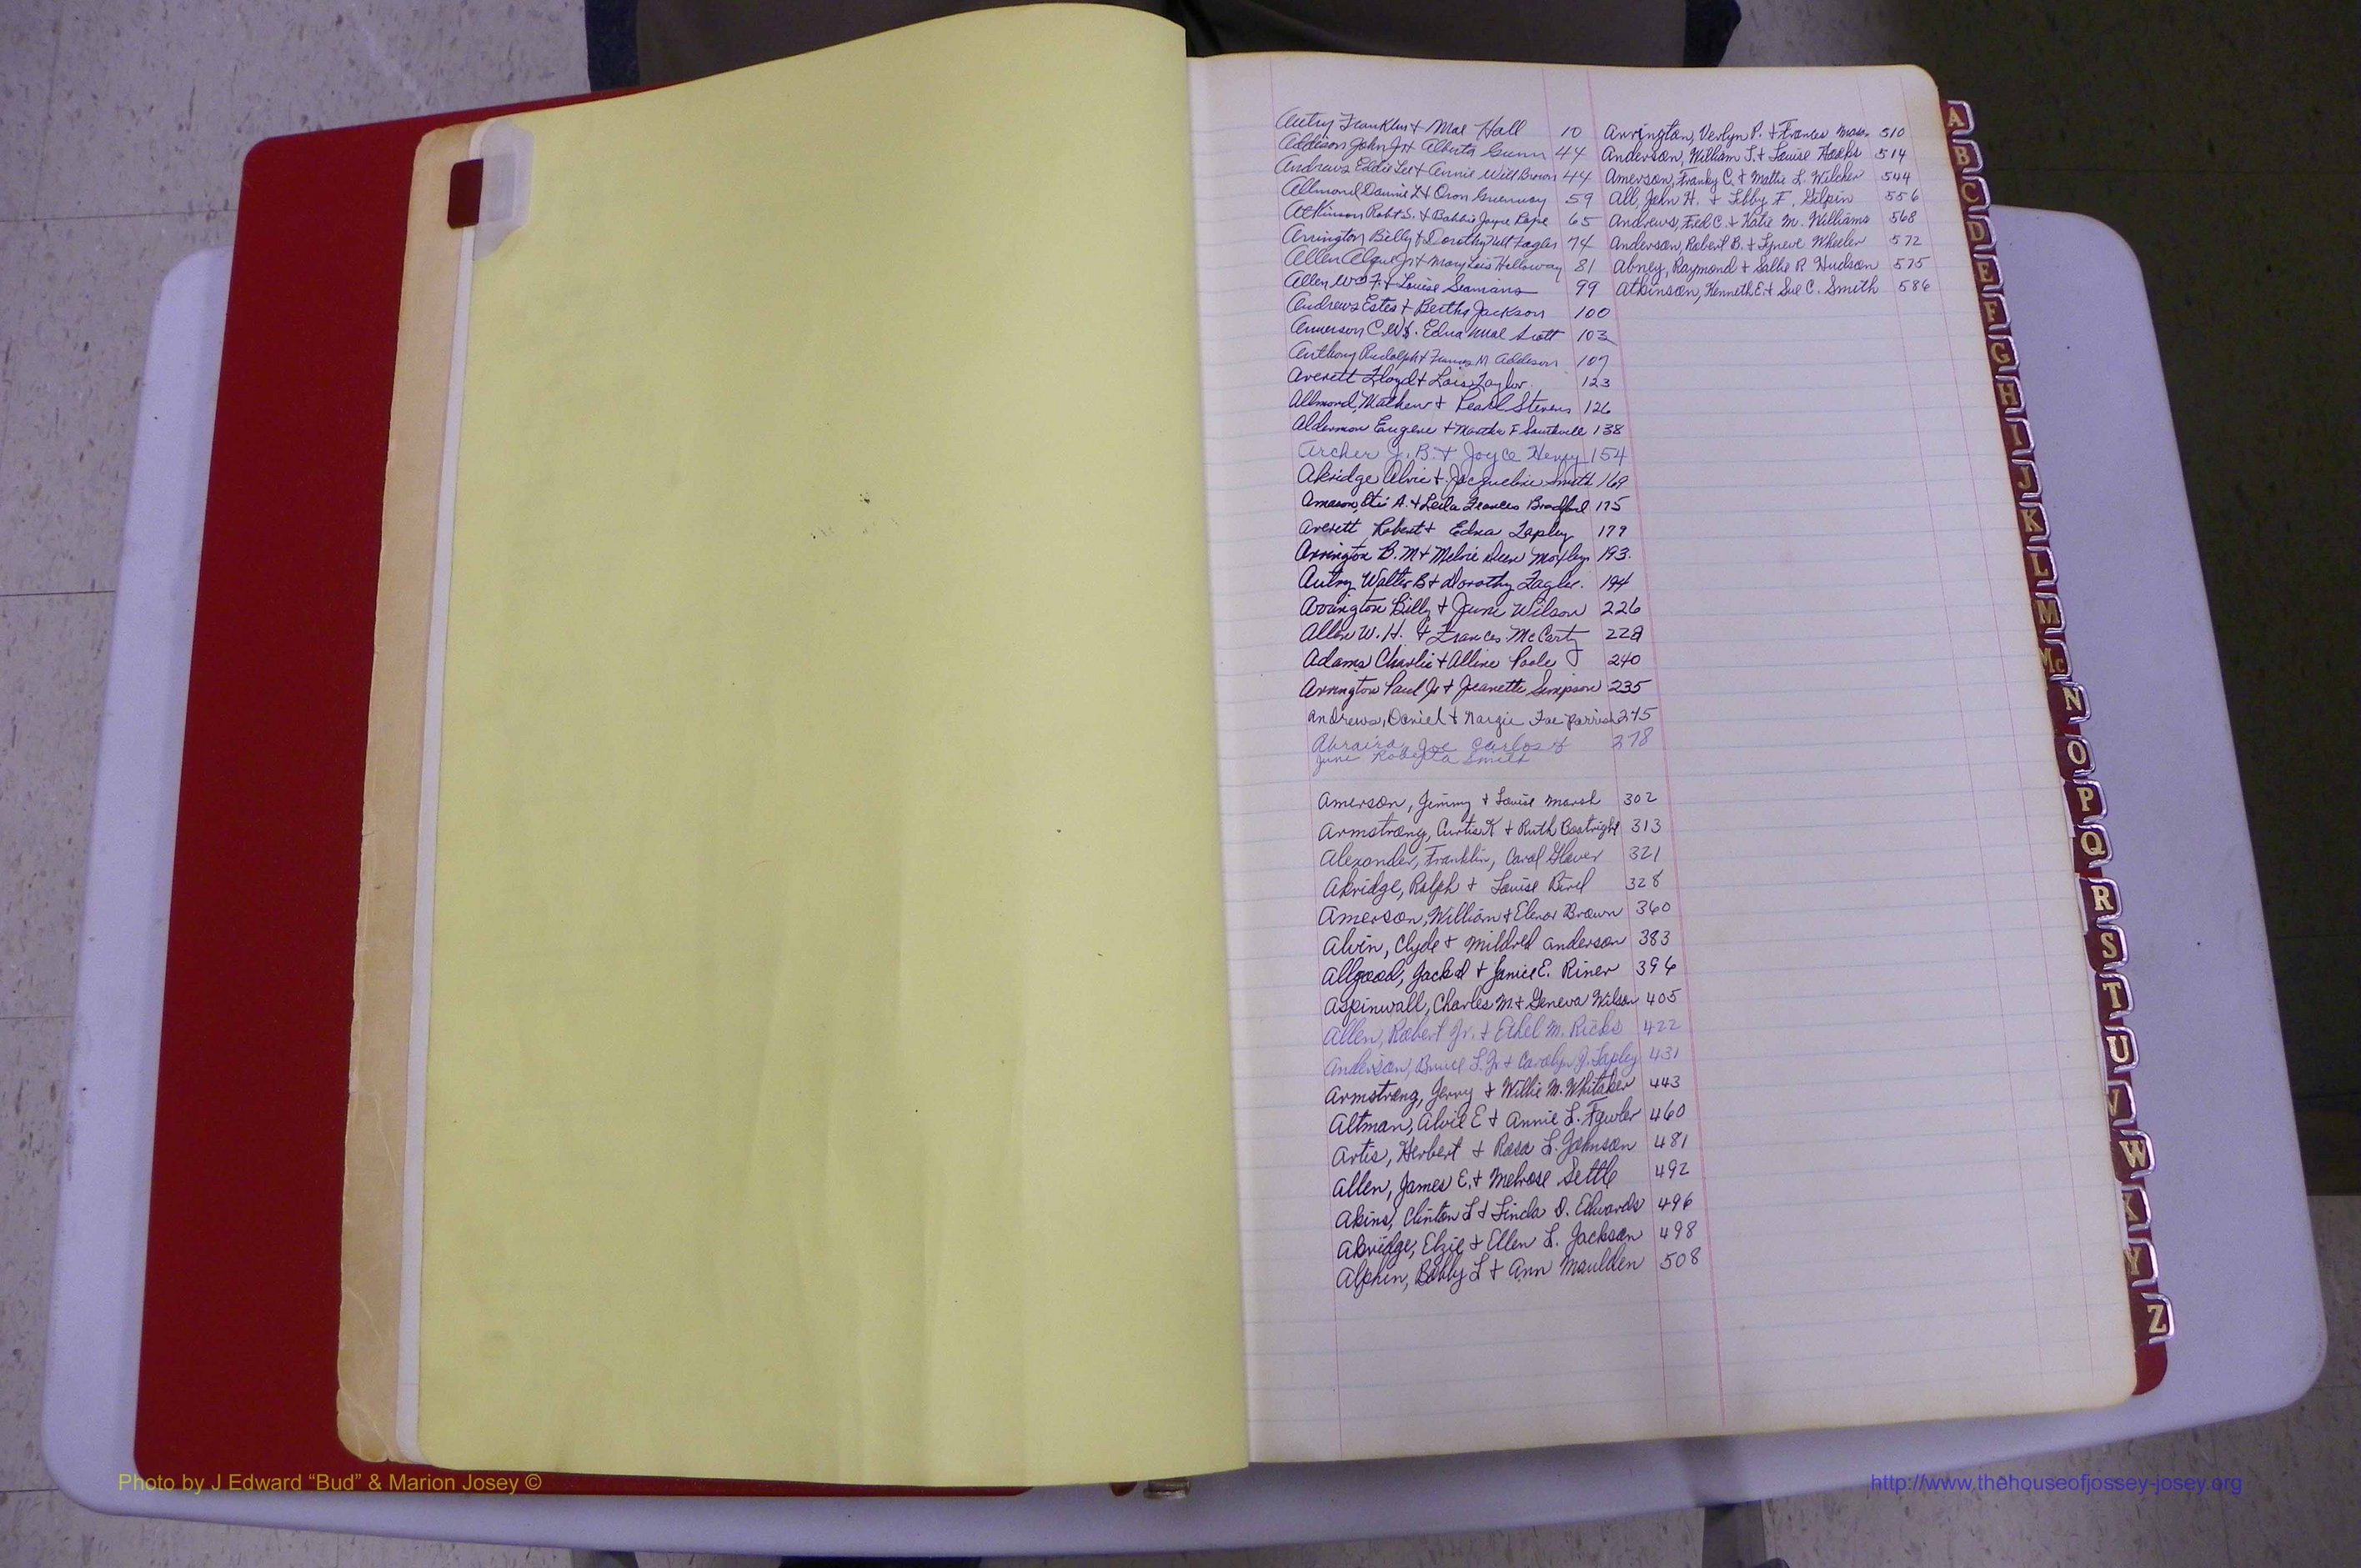 Autry Franklin + Mae Hall 10
Addison John Jr + Alberta Gunn 44
Andrews Eddie Lee + Annie Will Brown 44
Allmond Dannie L + Oron Greenway 59
Atkinson Robt S. + Bobbie Joyce Pope 65
Arrington Billy + Dorothy Nell Fagler 74
Allen Algie Jr + Mary Lois Holloway 81
Allen Wm F. + Louise Seamans 99
Andrews Estes + Bertha Jackson 100
Amerson C.W. Edna Mae Scott 103
Anthony Rudolph + Frances M Addison 107
Averett Floyd + Lois Taylor. 123
Allmond, Mathew + Pearl Stevens 126
Alderman Eugene + Martha F Smithville 138
Archer J. B. + Joyce Henry 154
Akridge Alvie + Jacqueline Smith 169
Amason, A. + Leila Frances Bradford 175
Averett Robert + Edna Tapley 179
Arrington B. M + Melvie Moxley 193.
Autry Walter B + Dorothy Fagler. 194
Arrington Billy + June Wilson 226
Allen W. H. + Frances McCarty 228
Adams Charlie + Alline Poole 240
Arrington Paul Jr + Jeanette Simpson 235
Andrews, Daniel + Margie Fae Parrish 275
Abraira, Joe Carlos + 278
June Roberta Smith
Amerson, Jimmy + Louise Marsh 302
Armstrong, Curtis K + Ruth Boatright 313
Alexander, Franklin, Carol Glover 321
Akridge, Ralph + Louise Bird 328
Amerson, William + Elenor Brown 360
Alvin, Clyde + Mildred Anderson 383
Allgood, Jack d + Janice E. Riner 396
Aspinwall, Charles M. + Geneva Wilson 405
Allen, Robert Jr. + Ethel M. Ricks 422
Anderson, Bruce L. Jr + Carolyn J. Tapley 431
Armstrong, Jerry + Willie M. Whitaker 443
Altman, Alvie E + Annie L. Fowler 460
Artis, Herbert + Rosa L. Johnson 481
Allen, James E. + Melrose Settle 492
Akins, Clinton L + Linda D. Edwards 496
Akridge, Elzie + Ellen L. Jackson 498
Alphin, Bobby L + Ann Maulden 508
Arrington, Verlyn P. + Frances Mason 510
Anderson, William J. + Louise Hooks 514
Amerson, Franky C. + Mattie L. Wilcher 544
All, John H. + Libby F. Gilpin 556
Andrews, Fred C. + Katie M. Williams 568
Anderson, Robert B. + Lyneve Wheeler 572
Abney, Raymond + Sallie R Hudson 575
Atkinson, Kenneth E. + Sue C. Smith 586
A
B
C
D
E
F
G
H
I
J
K
L
M
Mc
N
O
P
Q
R
S
T
U
V
W
X
Y
Z
Photo by J Edward “Bud” & Marion Josey ©
http://www.thehouseofjossey-josey.org